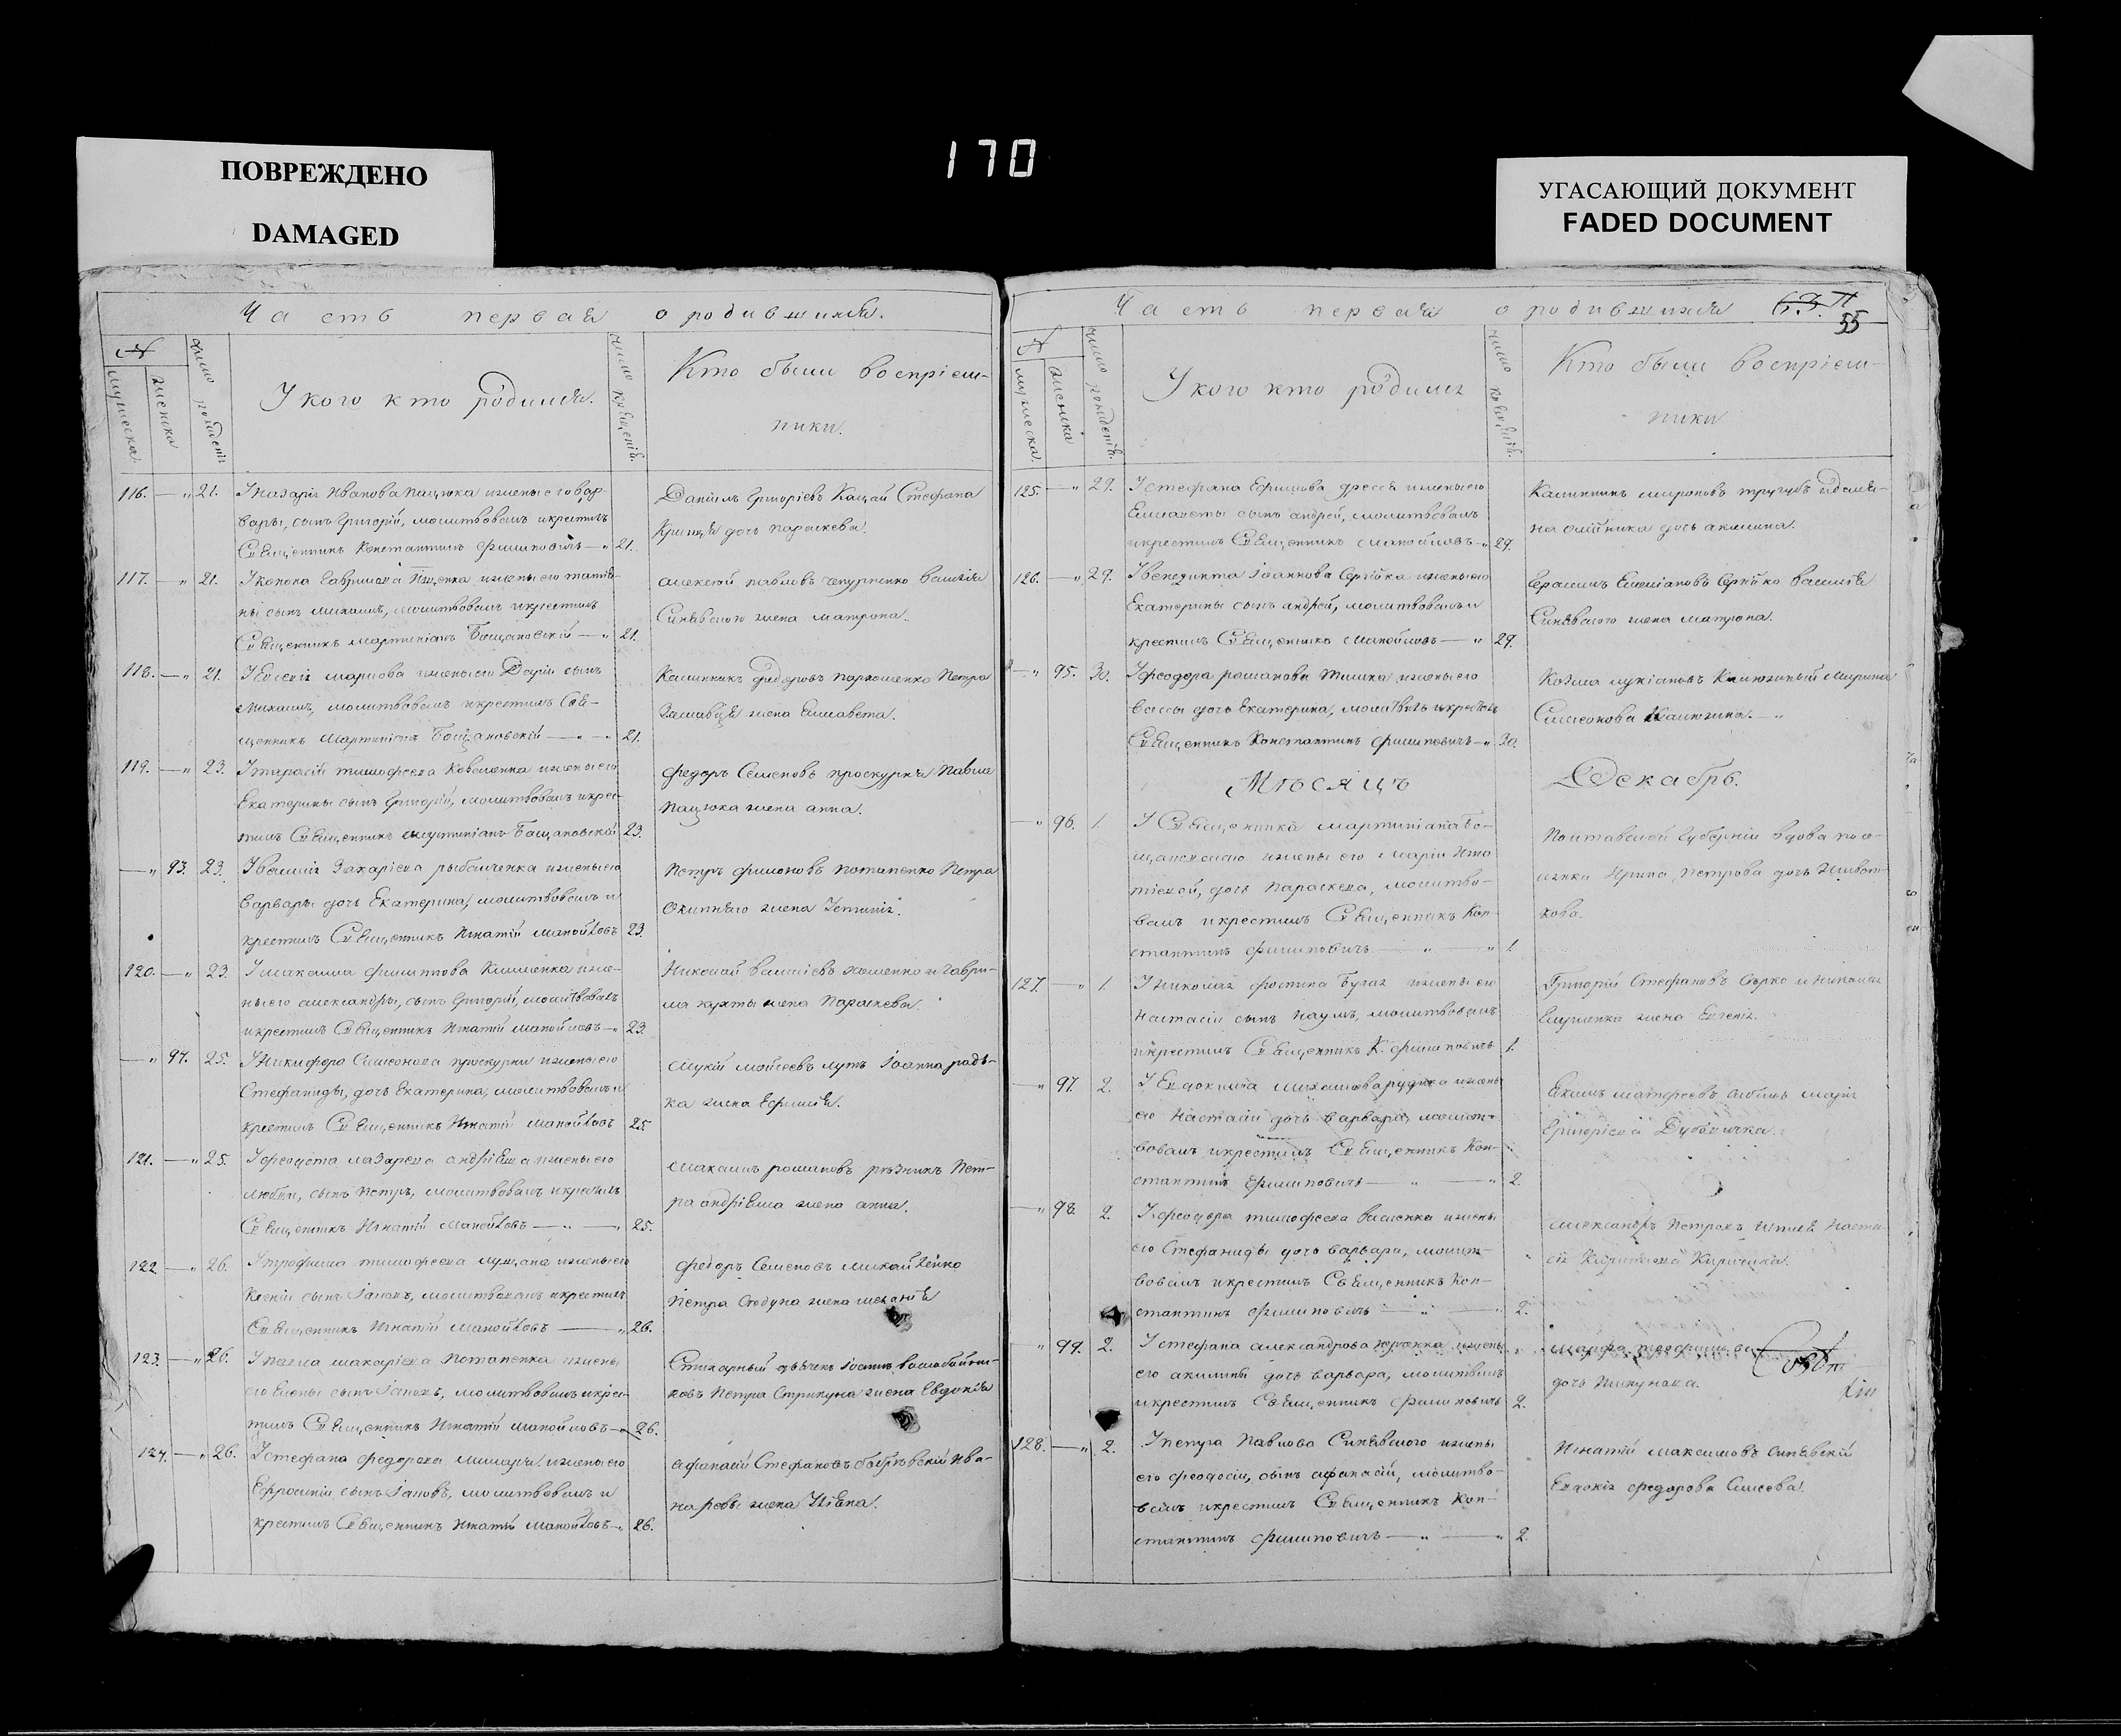 170
ПОВРЕЖДЕНО
DAMAGED
УГАСАЮЩИЙ ДОКУМЕНТ
FADED DOCUMENT
Часть первая о родившихся.
№
мужеска.
женска
число рождения
У кого кто родился.
число крещения.
Кто были воспріем-
ники.
116. — „ 21. У Назарія Иванова Пацюка и жены его Вар-
вары, сынъ Григорій, молитвовалъ и крестилъ
Священникъ Константинъ Филиповичъ — „ 21.
Даніилъ Григоріевъ Кацай Стефана
дочь Параскева.
117. — „ 21. У Конона Гавриилова и жены его Татія-
ны сынъ Михаилъ, молитвовалъ и крестилъ
Священникъ Мартиніанъ Бощановскій — „ 21.
Алексѣй Павловъ Чепурненко Василія
Синявского жена Матрона.
118. — „ 21. У Евсевія Маркова и жены его Дарiи сынъ
Михаилъ, молитвовалъ и крестилъ Свя-
щенникъ Мартиніанъ Бощановскій — „ — „ 21.
Калинникъ Федоровъ Пархоменко Петра
жена Елисавета.
119. — „ 23. У Тарасія Тимофеева Коваленка и жены его
Екатерины сынъ Григорій, молитвовалъ и крес-
тилъ Священникъ Мартиніанъ Бощановскій 23.
Федоръ Семеновъ Проскурня Павла
Пацюка жена Анна.
— „ 93. 23. У Василія Захаріева Рыбалченка и жены его
Варвары дочь Екатерина, молитвовалъ и
крестилъ Священникъ Игнатій Манойловъ 23.
Петръ Филоновъ Потапенко Петра
жена Евгенія.
120. — „ 23. У Максима Филипова Клименка и же-
ны его Александры, сынъ Григорій, молитвовалъ
и крестилъ Священникъ Игнатій Манойловъ — „ 23.
Николай Василіевъ Хоменко и Гаври-
ла жена Параскева.
— „ 94. 25. У Никифора Симеонова Проскурни и жены его
Стефаниды, дочь Екатерина, молитвовалъ и
крестилъ Священникъ Игнатій Манойловъ 25.
Мойсеевъ Лутъ Іоанна Радь-
ка жена Ефимія.
121. — „ 25. У Феодота Лазарева Андріяша и жены его
Любви, сынъ Петръ, молитвовалъ и крестилъ
Священникъ Игнатій Манойловъ — „ — „ 25.
Максимъ Романовъ Рѣзникъ Пет-
ра Андріяша жена Анна.
122. — „ 26. У Трофима Тимофеева и жены его
Ксеніи сынъ Іаковъ, молитвовалъ и крестилъ
Священникъ Игнатій Манойловъ — „ 26.
Федоръ Семеновъ
Петра жена
123. — „ 26. У Павла Макаріева Потапенка и жены
его Елены сынъ Іаковъ, молитвовалъ и крес-
тилъ Священникъ Игнатій Манойловъ — „ 26.
Стихарный дьячекъ Іоаннъ
Петра Стрикуна жена Евдокія
124. — „ 26. У Стефана Федорова и жены его
Ефросиніи сынъ Іаковъ, молитвовалъ и
крестилъ Священникъ Игнатій Манойловъ — „ 26.
Афанасій Стефановъ Ива-
на жена Уліяна.
Часть первая о родившихся
55
№
мужеска.
женска
число рожденія.
У кого кто родился
число крещенія.
Кто были воспріем-
ники
125. — „ 29. У Стефана Ефимова и жены его
Елисаветы сынъ Андрей, молитвовалъ
и крестилъ Священникъ Манойловъ — „ 29.
Калинникъ Мироновъ
Олійника дочь Акилина.
126. — „ 29. У Венедикта Іоаннова Сергійка и жены его
Екатерины сынъ Андрей, молитвовалъ и
крестилъ Священникъ Манойловъ — „ 29.
Герасимъ Емеліановъ Сергійко Василія
Синявского жена Матрона.
— „ 95. 30. У Феодора Романова и жены его
Вассы дочь Екатерина, молитвовалъ и крестилъ
Священникъ Константинъ Филиповичъ — „ 30.
Козма Лукіановъ Калюжный
Симеонова Калюжина. — „
Мѣсяцъ Декабрь.
— „ 96. 1. У Священника Мартиніана Бо-
щановского и жены его Маріи Игна-
тіевой, дочь Параскева, молитво-
валъ и крестилъ Священникъ Кон-
стантинъ Филиповичъ — „ — „ 1.
Полтавской Губерніи
Ирина Петрова дочь
127. — „ 1. У Николая Фотина Бугая и жены его
Настасіи сынъ Наумъ, молитвовалъ
и крестилъ Священникъ К. Филиповичъ 1.
Григорій Стефановъ Сѣрко и Николая
жена Евгенія.
— „ 97. 2. У Евдокима Михайлова Рудика и жены
его Настасіи дочь Варвара, молит-
вовалъ и крестилъ Священникъ Кон-
стантинъ Филиповичъ — „ — „ 2.
Екимъ Матфеевъ Марія
Григоріева
— „ 98. 2. У Феодора Тимофеева Василенка и жены
его Стефаниды дочь Варвара, молит-
вовалъ и крестилъ Священникъ Кон-
стантинъ Филиповичъ — „ — „ 2.
Александръ Петровъ
Киричина.
— „ 99. 2. У Стефана Александрова и жены
его Акилины дочь Варвара, молитвовалъ
и крестилъ Священникъ Филиповичъ 2.
Марфа
дочь Пикунова.
128. — „ 2. У Петра Павлова Синявского и жены
его Феодосіи, сынъ Афанасій, молитво-
валъ и крестилъ Священникъ Кон-
стантинъ Филиповичъ — „ — „ 2.
Игнатій Максимовъ Синявскій
Евдокія Федорова